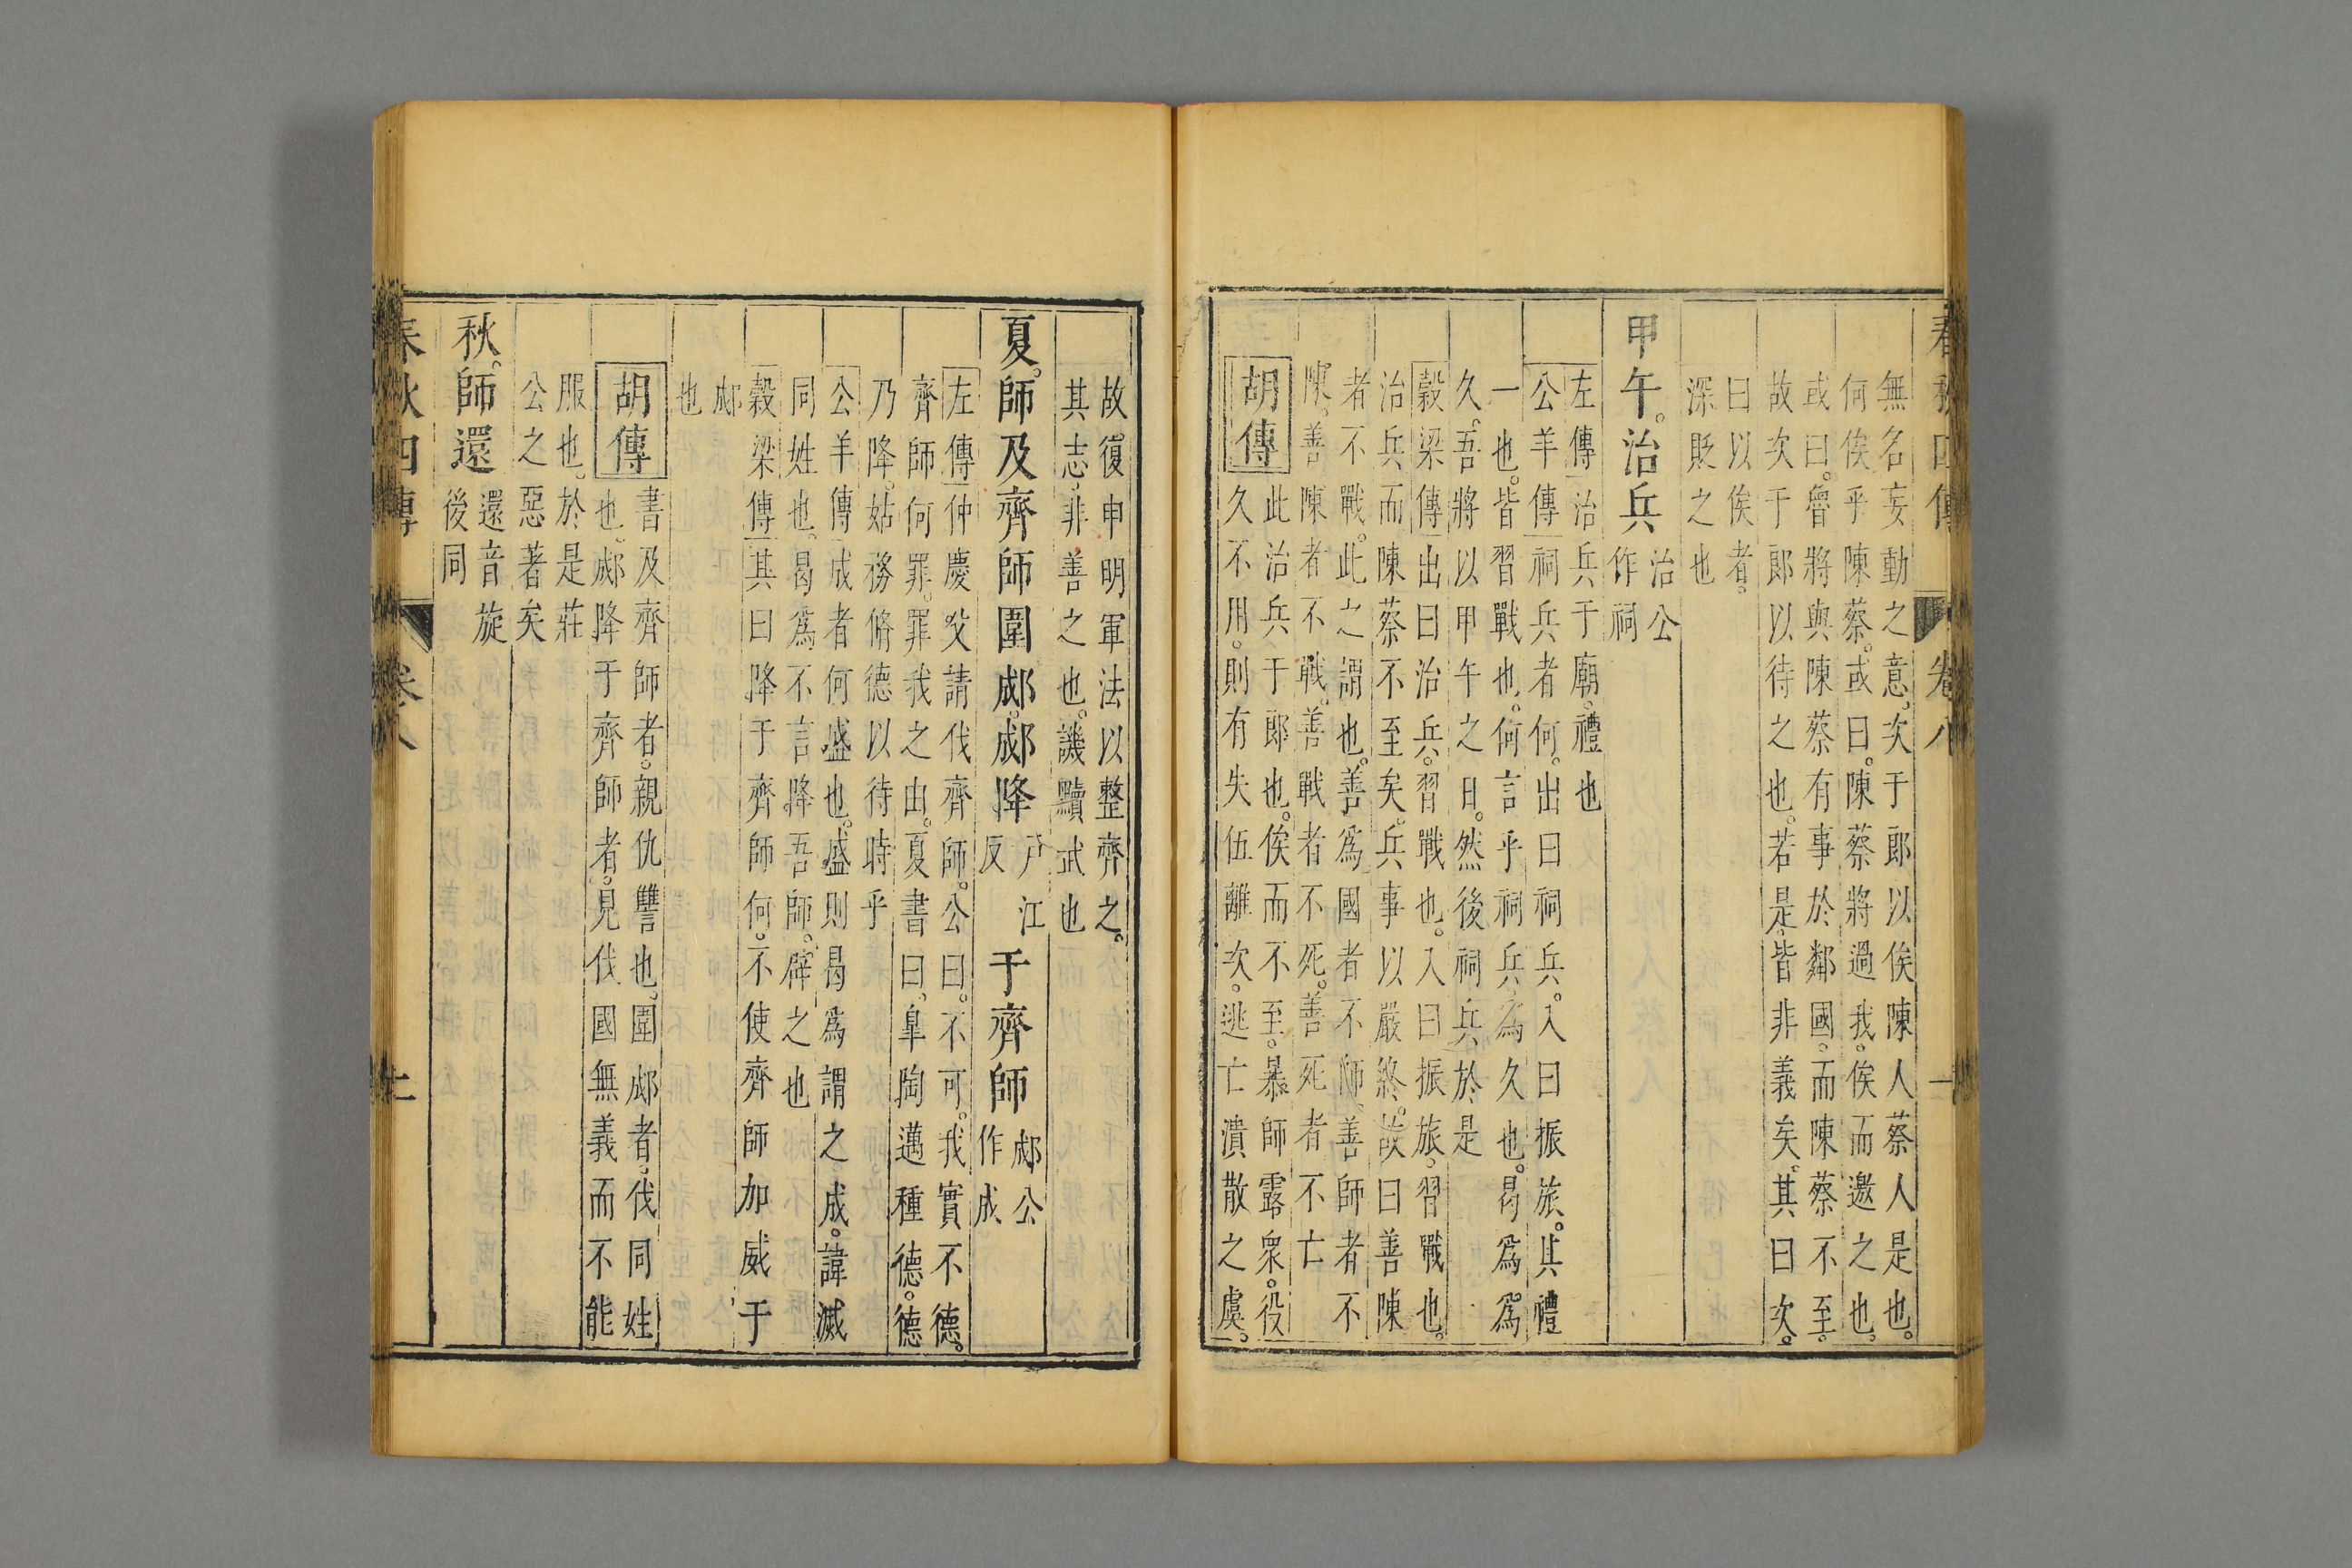 春秋四傳 卷八
無名妄動之意。次于郎以俟陳人蔡人是也。
何俟乎陳蔡。或曰。陳蔡將過我。俟而邀之也。
或曰。魯將與陳蔡有事於鄰國。而陳蔡不至。
故次于郎以待之也。若是。皆非義矣。其曰次。
曰以俟者。
深貶之也
甲午。治兵
治公
作祠
左傳治兵于廟。禮也
公羊傳祠兵者何。出曰祠兵。入曰振旅。其禮
一也。皆習戰也。何言乎祠兵。為久也。曷爲爲
久。吾將以甲午之日。然後祠兵於是
穀梁傳出曰治兵。習戰也。入曰振旅。習戰也。
治兵而陳蔡不至矣。兵事以嚴終。故曰善陳
者不戰。此之謂也。善爲國者不師。善師者不
陳。善陳者不戰。善戰者不死。善死者不亡
胡傳
此治兵于郎也。俟而不至。暴師露衆。役
久不用。則有失伍離次。逃亡潰散之虞。
故復申明軍法以整齊之。
其志。非善之也。譏黷武也
夏。師及齊師圍郕。郕降
戸江
反
于齊師
郕公
作成
左傳仲慶父請伐齊師。公曰。不可。我實不德。
齊師何罪。罪我之由。夏書曰。皐陶邁種德。德
乃降。姑務脩德以待時乎
公羊傳成者何。盛也。盛則曷爲謂之成。諱滅
同姓也。曷爲不言降吾師。辟之也
穀梁傳其曰降于齊師何。不使齊師加威于
郕
也
胡傳
書及齊師者。親仇讐也。圍郕者。伐同姓
也。郕降于齊師者。見伐國無義而不能
服也。於是莊
公之惡著矣
秋。師還
還音旋
後同
春秋四傳 卷八